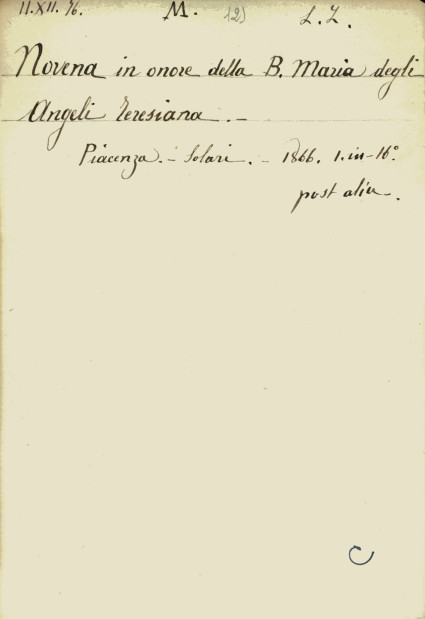 II. XII. 76. M. (2) L. Z.
Novena in onore della B. Maria degli
Angeli Teresiana. -
Piacenza. - Solari. - 1866. 1. in-16°
post aliu-.
C